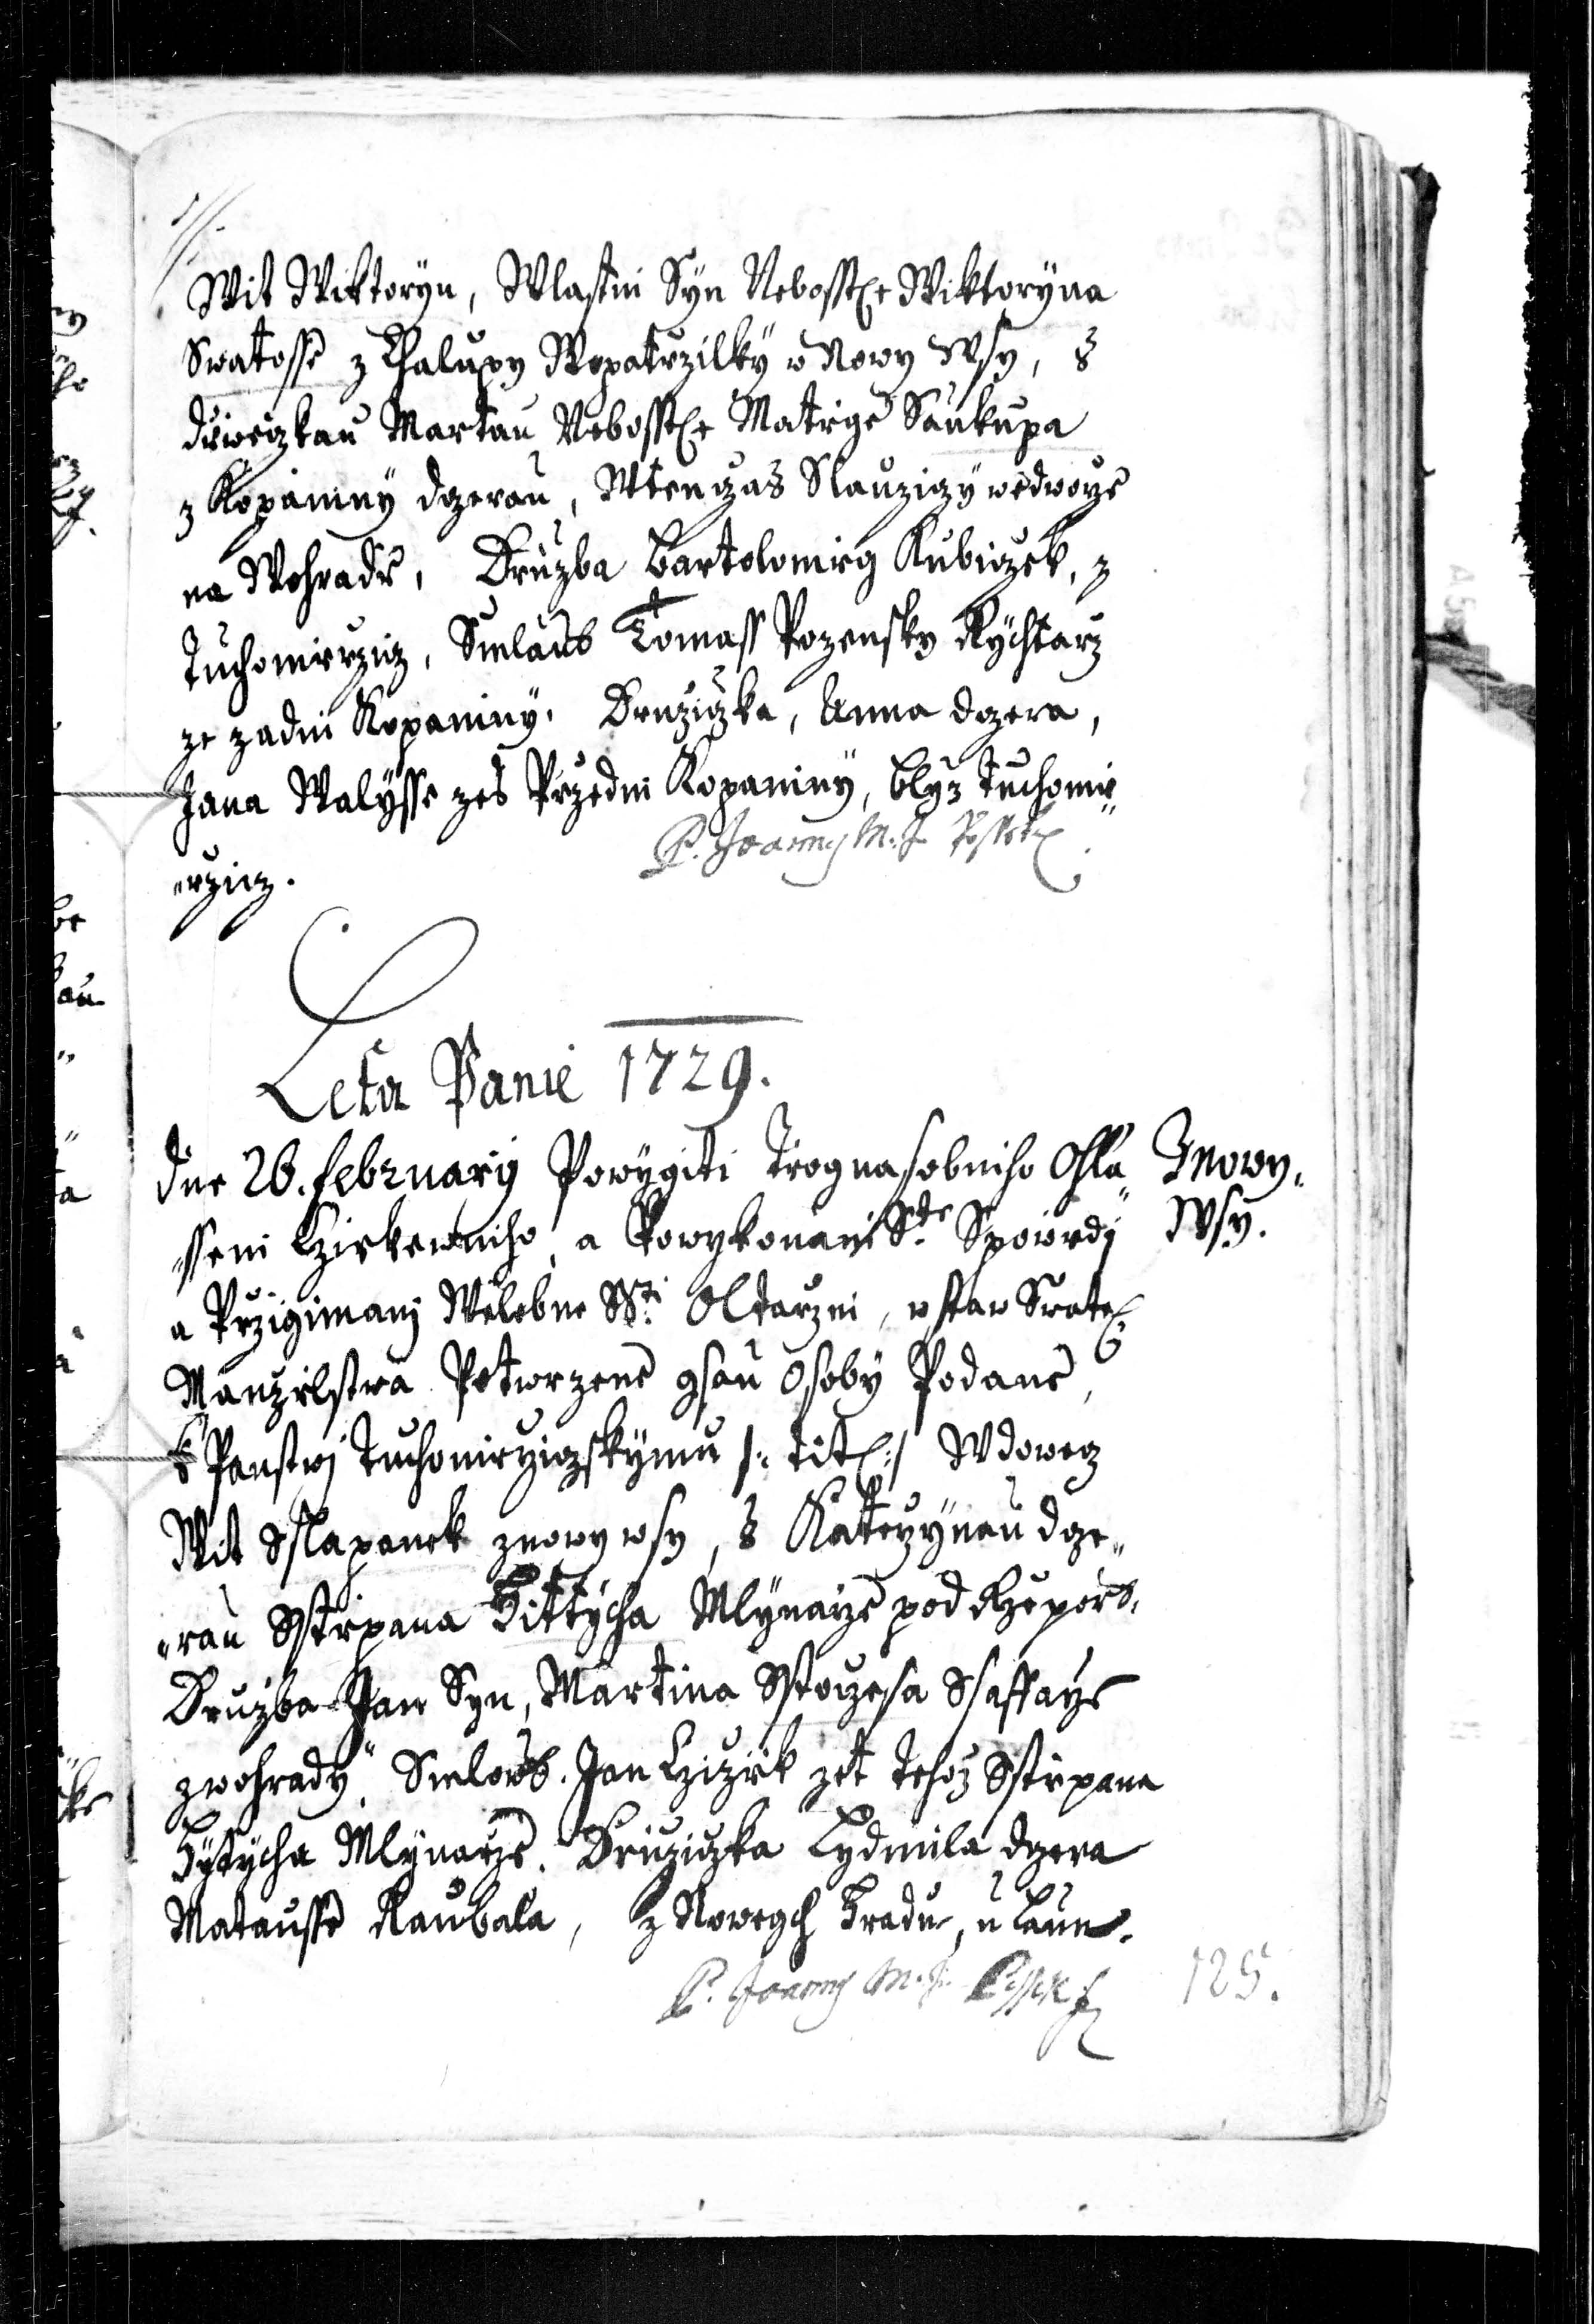 Wit Wiktoryn, Wlastni Syn Nebosst: Wiktoryna
Swatosse z Chalupy Wopatrzilky w Nowy Wsy, s
diweczkau Martau Nebosst: Matiege Saukupa
z Kopaniny dczerau, Wtenczas Slauziczy wedworze
na Wohradie, Druzba Bartolomieg Kubiczek, z
Tuchomierzicz, Smlaub Tomass Pozensky Rychtarz
ze zadni Kopaniny. Druziczka, Anna dczera,
Jana Walysse zes Przedni Kopaniny, blyz Tuchomie„
„rzicz.
P. Joannes M.
Leta Panie 1729.
dne 26. february Powygiti Trognasobniho Ohla„
„sseni Czirkewniho, a Powykonani Ste Spowiedi
a Przigimani Welebne Sti Oltarzni, w staw Swate:
Manzelstwa Potwrzene gsau Osoby Podane,
k Panstwi Tuchomierziczskymu /: tit: :/ Wdowecz
Wit Sslapanek z nowy wsy, s Katerzynau dcze„
„rau Sstiepana Hittycha Mlynarze pod Rzepori.
Druzba Jan Syn, Martina Ssaffarze
z wohrady. Smlowb. Jan Czizek zet Tehoz Sstiepana
Hytycha Mlynarze. Druziczka Lydmila dczera
Matausse Raubala, z Nowegch Hradu, u Laun.
P. Joannes M.
Z Nowy„
Wsy.
125.